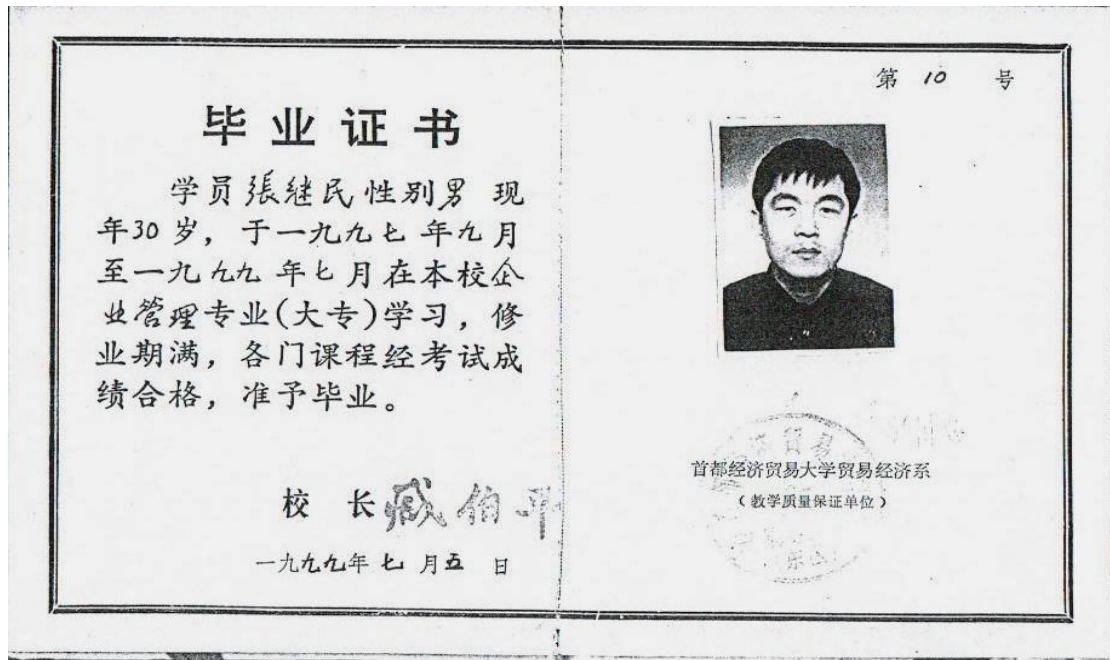 毕业证书
学员張继民性别男 现
年30岁，于一九九七年九月
至一九九九年七月在本校企
业管理专业(大专)学习，修
业期满，各门课程经考试成
绩合格，准予毕业。
校 长 臧伯平
一九九九年七月五日
第 10 号
贸易
首都经济贸易大学贸易经济系
（教学质量保证单位）